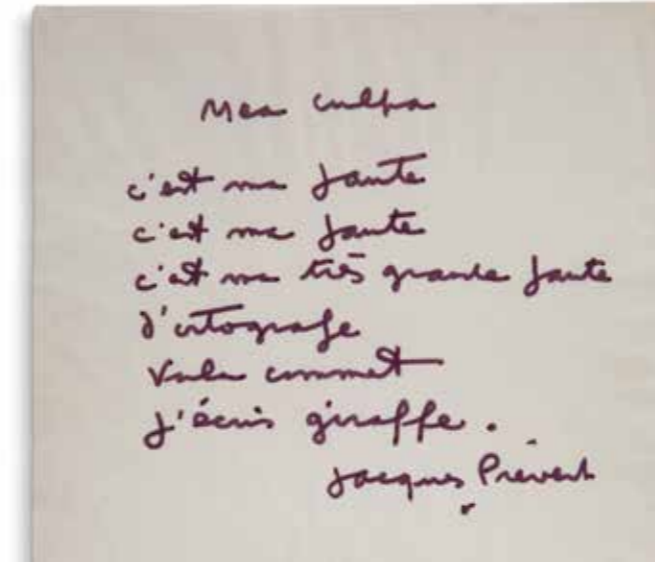 Mea culpa
c'est ma faute
c'est ma faute
c'est ma très grande faute
d'ortografe
Voila comment
j'écris giraffe.
Jacques Prévert